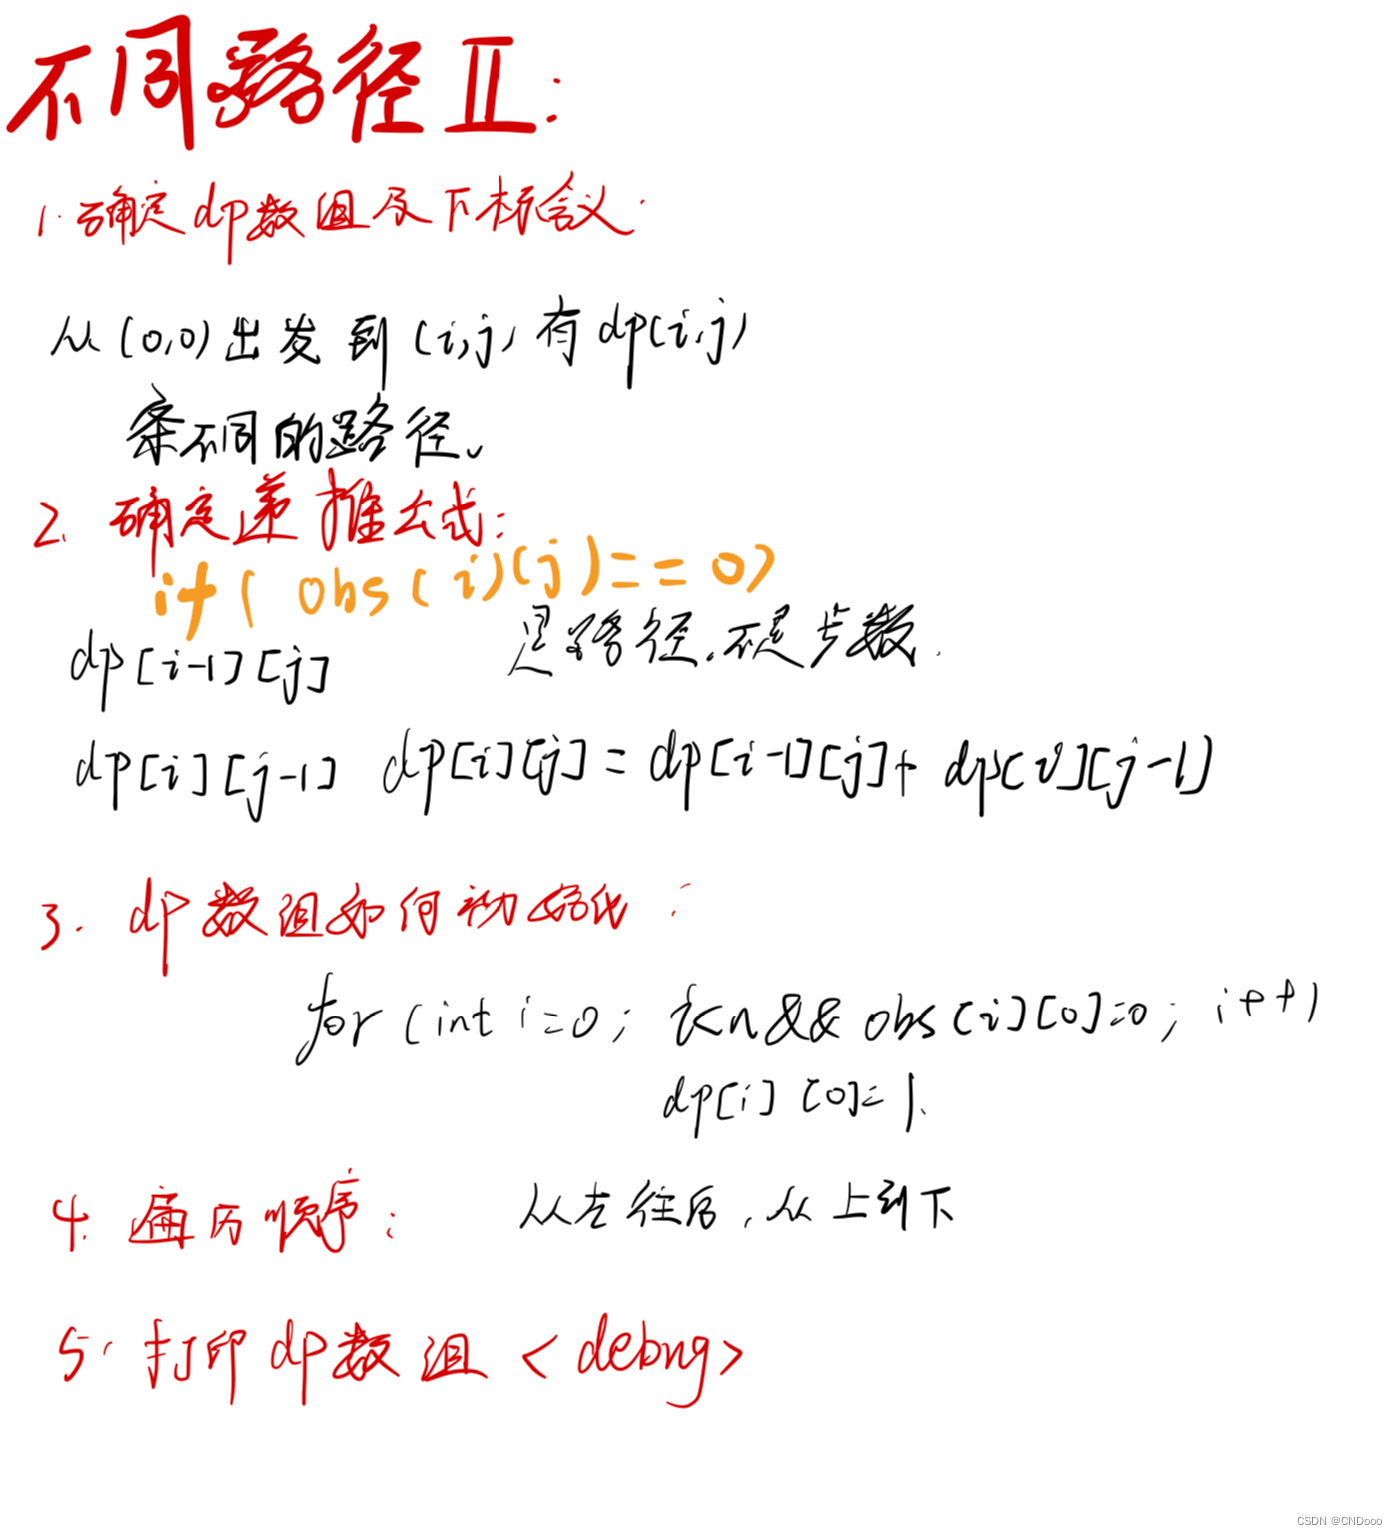 不同路径 II:
1. 确定dp数组及下标含义.
从(0,0)出发到(i,j)有dp(i,j)
条不同的路径。
2. 确定递推公式:
if( obs(i)(j)==0)
dp[i-1][j] 是路径,不是步数.
dp[i][j-1] dp[i][j] = dp[i-1][j]+ dp[i][j-1]
3. dp数组如何初始化:
for(int i=0; i<n&& obs[i][0]=0; i++)
dp[i][0]=1.
4. 遍历顺序: 从左往后,从上到下
5. 打印dp数组<debug>
CSDN @CNDooo